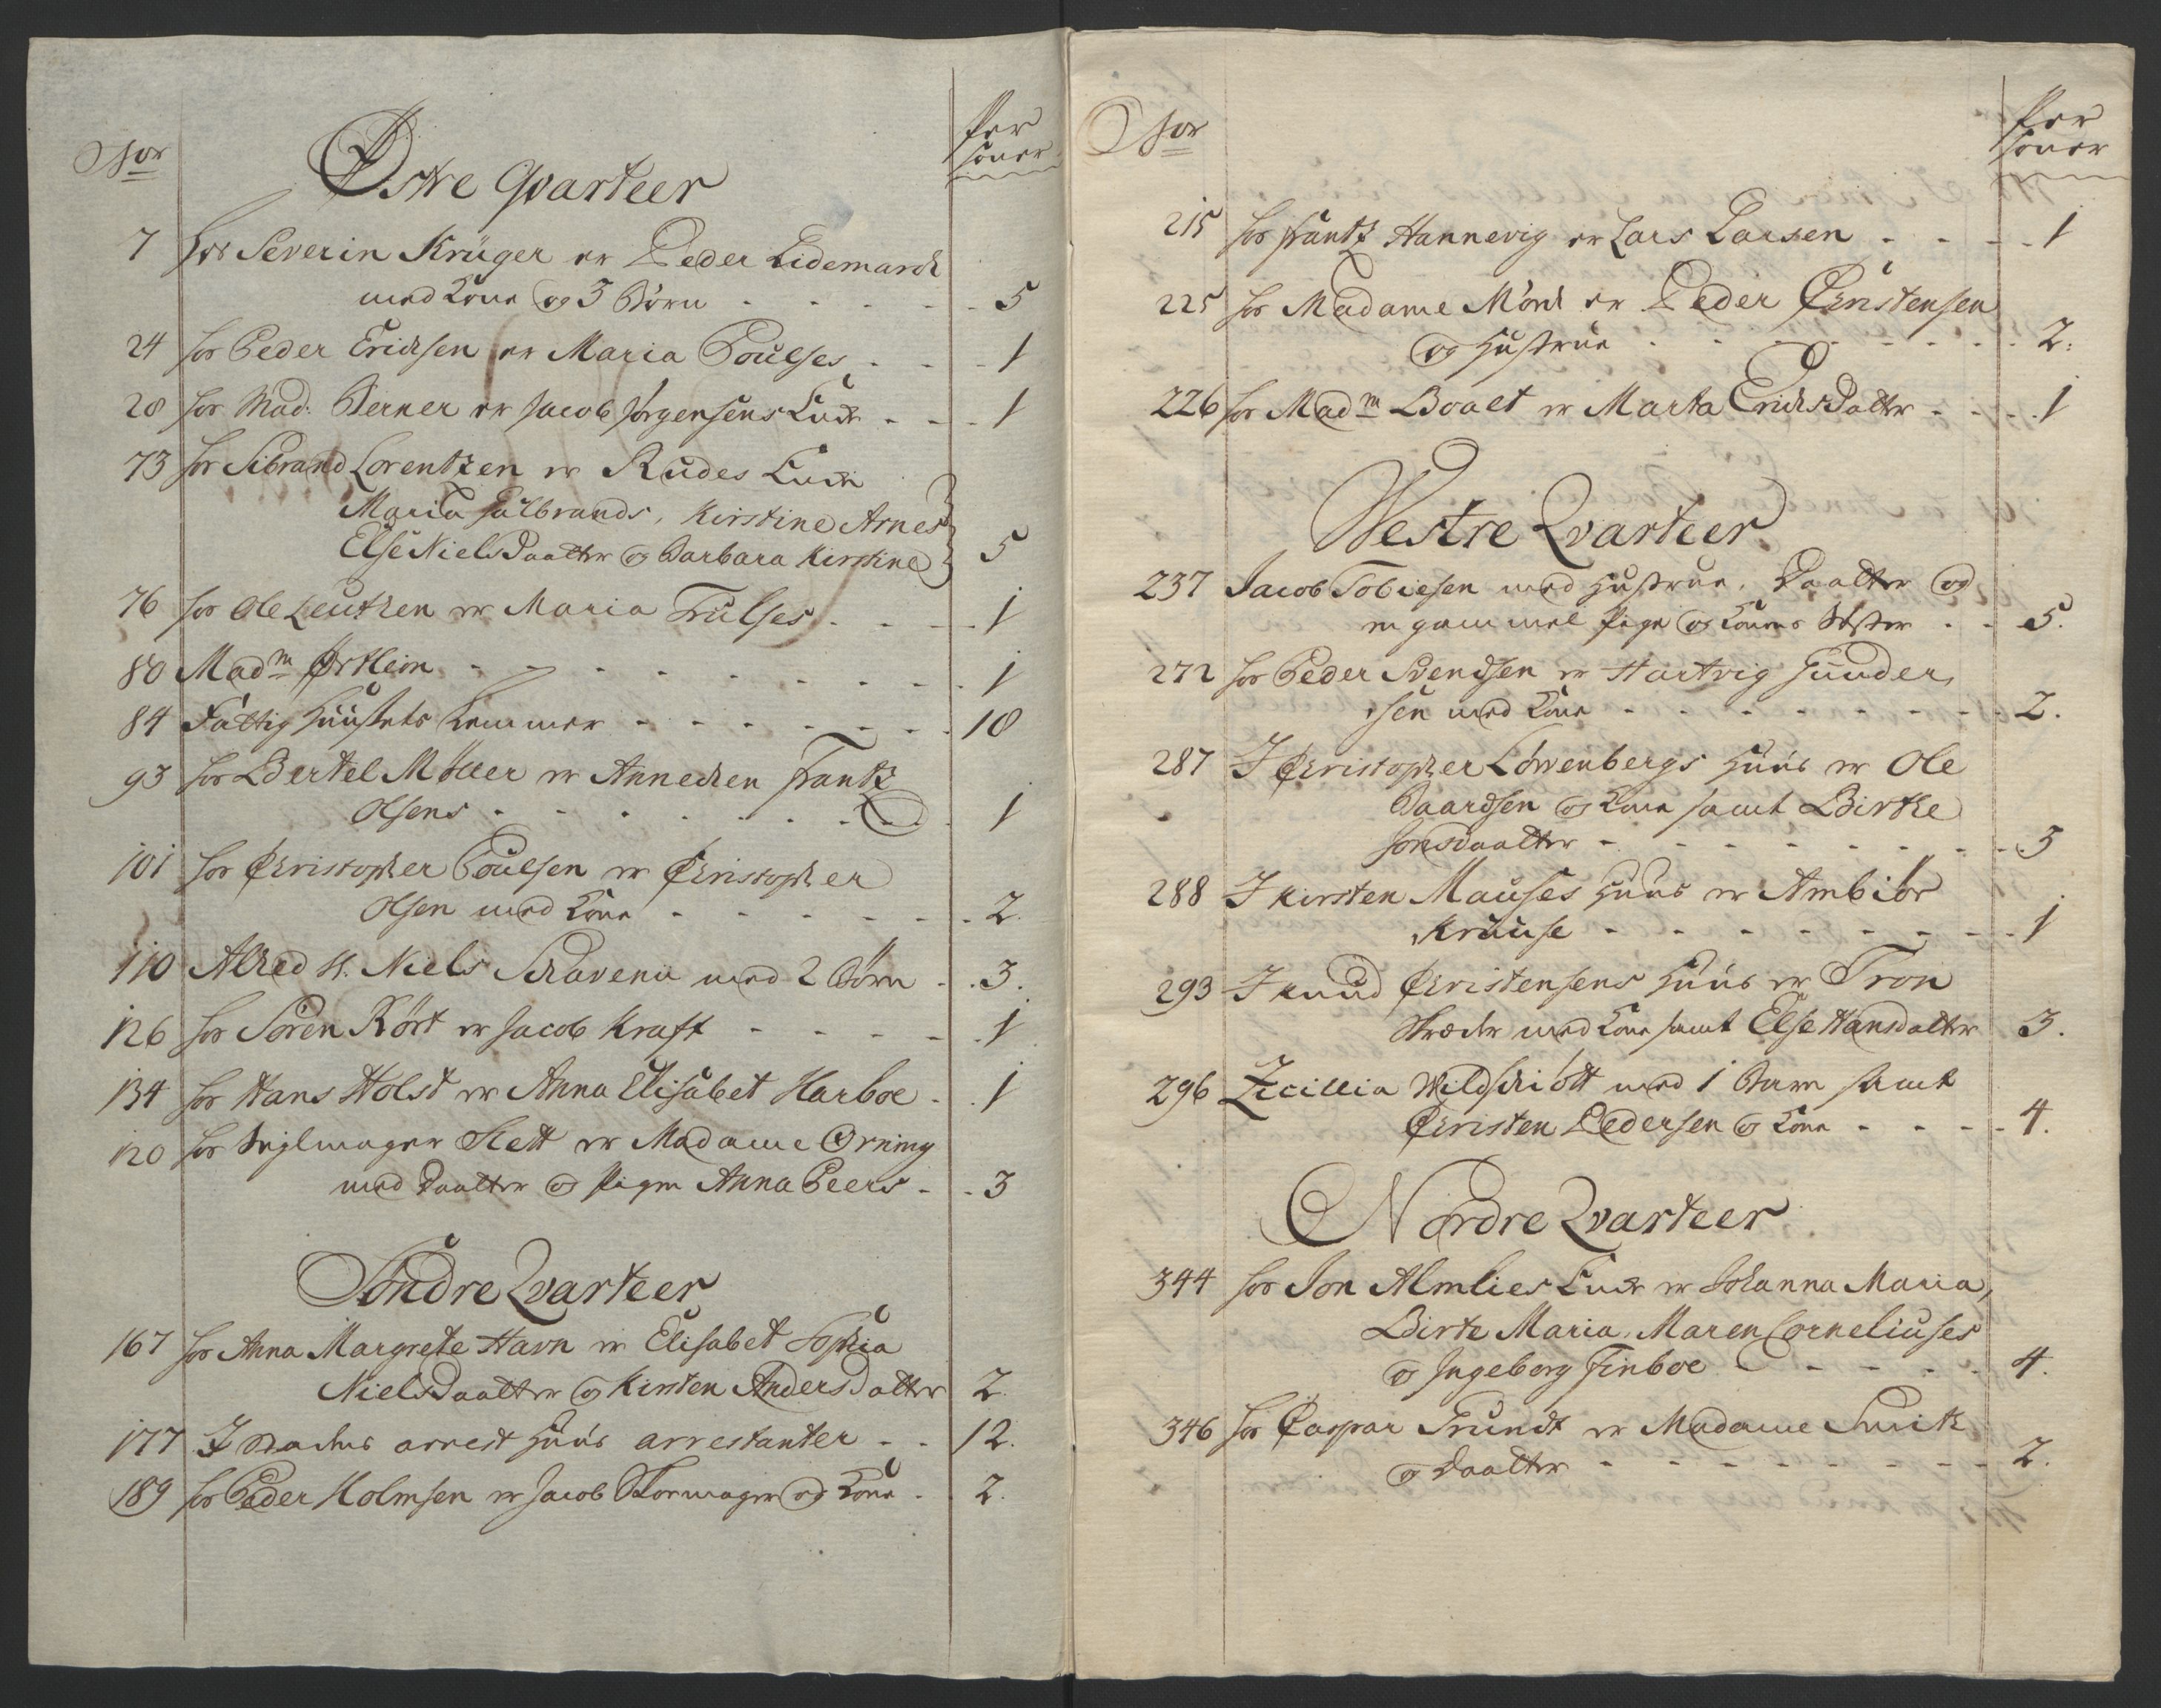 No
Personer
Østre Qvarteer
7 hos Severin Krüger er Peder Lidemark
med Kone og 3 Børn - - - - 5
24 hos Peder Erichsen er Maria Poulses - - - 1
28 hos Mad: Berner er Jacob Jørgensens Enke - - - 1
73 hos Sibrand Lorentzen er Rudes Enke
Maria Gulbrands, Kirstine Arnes
Else Niels Daatter og Barbara Kirstine 5
76 hos Ole Leutken er Maria Trulses - - - - 1
80 Madm Ørtlein - - - - - - - 1
84 Fattig Huusets Lemmer - - - - - - 10
93 hos Bertel Møller er Annechen Frantz
Olsens - - - - - - - 1
101 hos Christopher Poulsen er Christopher
Olsen med Kone - - - - - - 2.
110 Afked H. Niels Schavenii med 2 Børn - - 3.
126 hos Søren Kørt er Jacob Kraft - - - - - 1
134 hos Hans Holst er Anna Elisabet Harboe - - 1
120 hos Sejlmager Slett er Madame Ørning
med Daatter og Pigen Anna Peers - - 3
Søndre Qvarteer
167 hos Anna Margrete Havn er Elisabet Sophia
Niels Daatter og Kirsten Anders Datter 2.
177 I arrest Huus arrestanter - - 12.
189 hos Peder Holmsen er Jacob Skomager og Kone - - 2.
No
Personer
215 hos Frantz Hannevig er Lars Larsen - - - - 1
225 hos Madame Mørk er Peder Christensen
og Hustrue - - - - - - - 2:
226 hos Madm Boalt er Marta Erichsdatter - - - - 1
Westre Qvarteer
237 Jacob Tobiesen med Hustrue, Daatter og
en gammel Pige og Konens Søster - - 5.
272 hos Peder Svendsen er Hartvig Gunder,
sen med Kone - - - - - - - - 2.
287 I Christopher Løwenbergs Huus er Ole
Baardsen og Kone samt Birthe
Jonsdaatter - - - - - - - - 3
288 I Kirsten Mauses Huus er Ambiør
Kruuse - - - - - - - - 1
293 I Knud Christensens Huus er Tron
Skræder med Kone samt Else Hansdatter 3.
296 Zicillia Wildschiøtt med 1 Barn samt
Christen Pedersen og Kone - - - - 4.
Nordre Qvarteer
344 hos Jon Almlies Enke er Johanna Maria,
Birte Maria, Maren Corneliuses
og Ingeborg Finboe - - - - - 4.
346 hos Caspar Trundt er Madame Smith
og Daatter - - - - - - - 2.